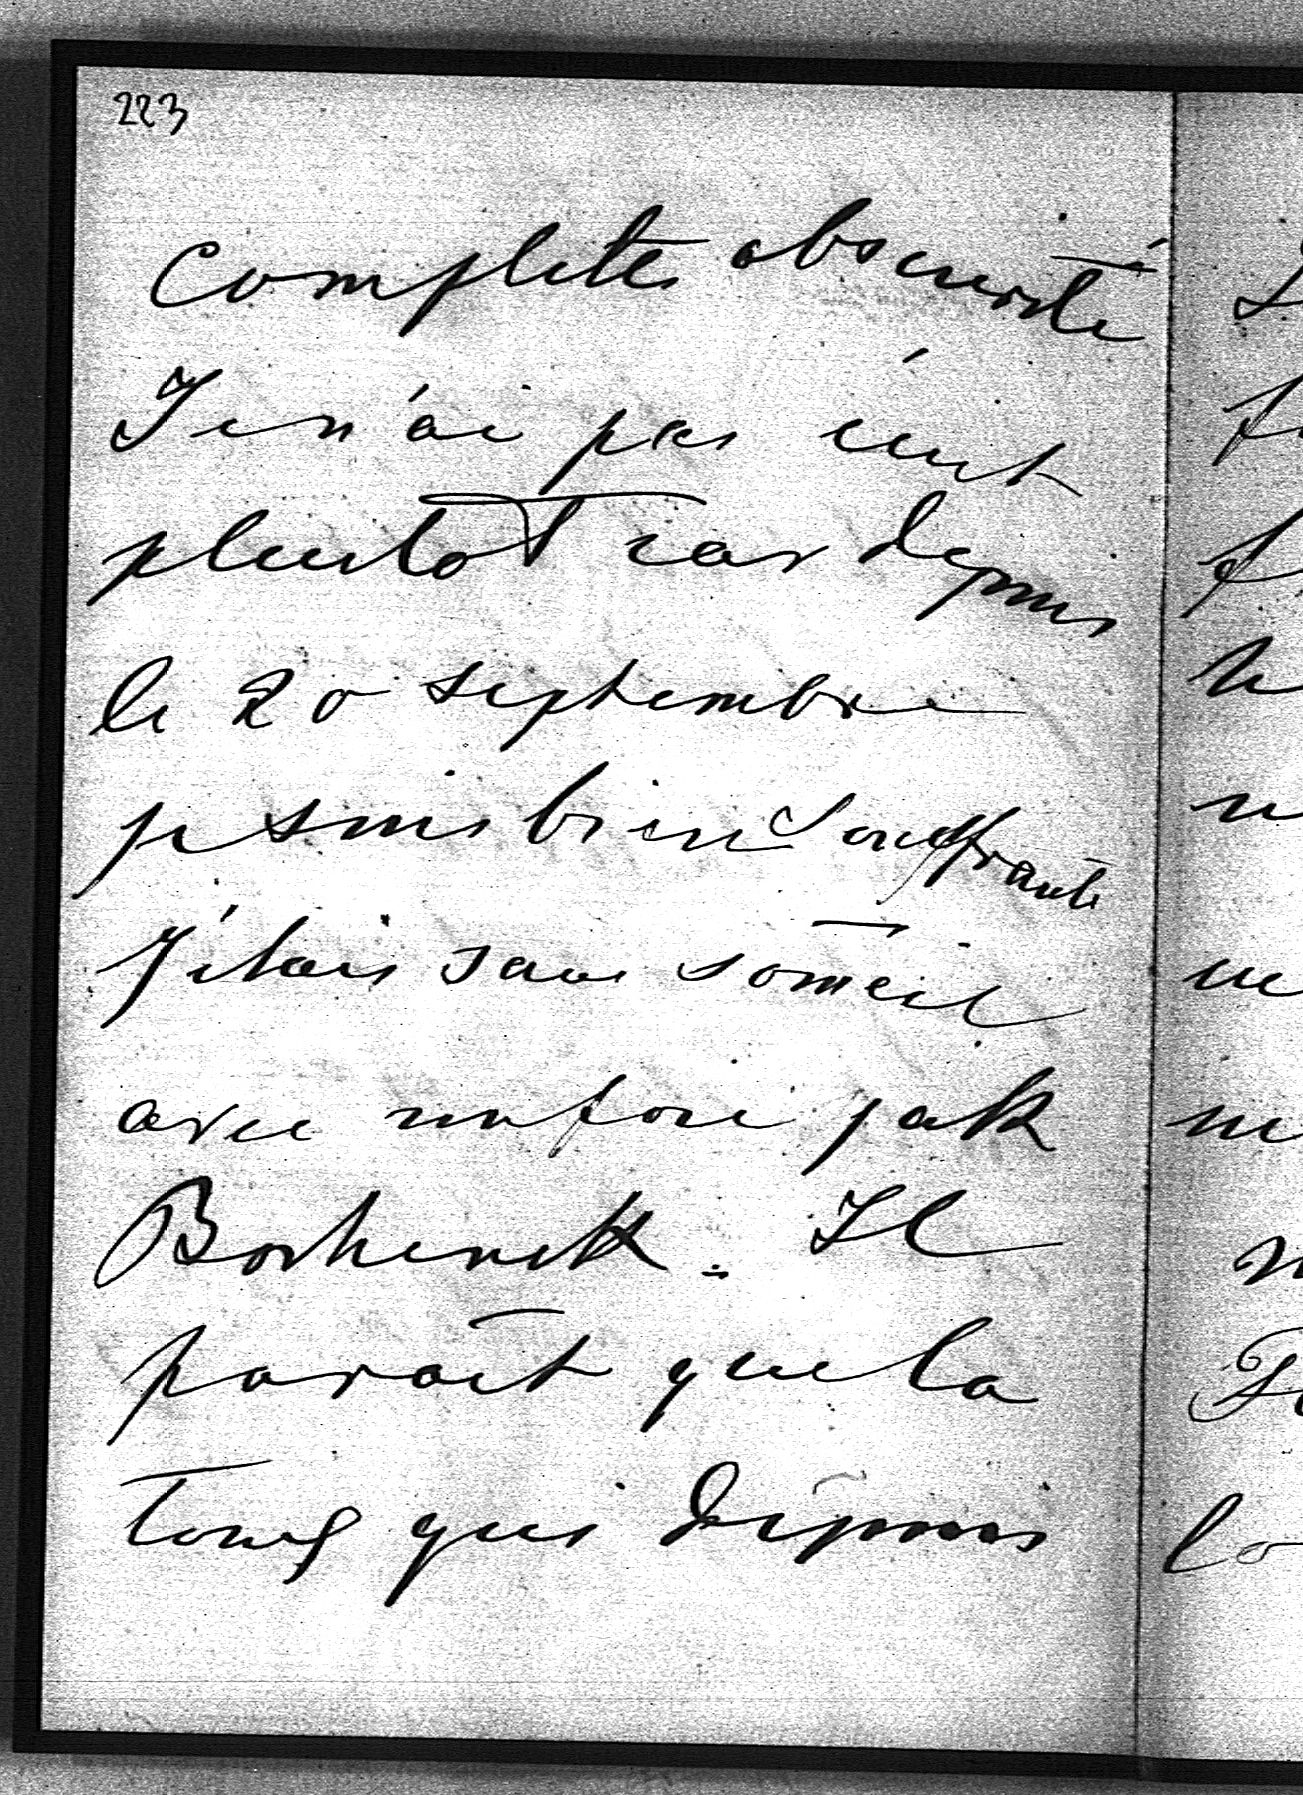 223
complete obscurité
Je n'ai pas écrit
pleutôt car depuis
le 20 septembre
je suis bien souffrante
J'étais sans someil
avec un foie jak
Borkenck. Il
paroît que la
toux qui depuis